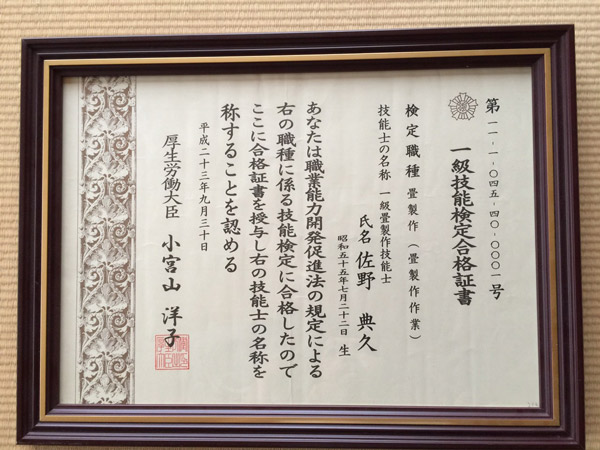 第一一-一-〇四五-四〇-〇〇〇一号
一級技能検定合格証書
検定職種 畳製作(畳製作作業)
技能士の名称 一級畳製作技能士
氏名 佐野 典久
昭和五十五年七月二十二日 生
あなたは職業能力開発促進法の規定による
右の職種に係る技能検定に合格したので
ここに合格証書を授与し右の技能士の名称を
称することを認める
平成二十三年九月三十日
厚生労働大臣 小宮山 洋子